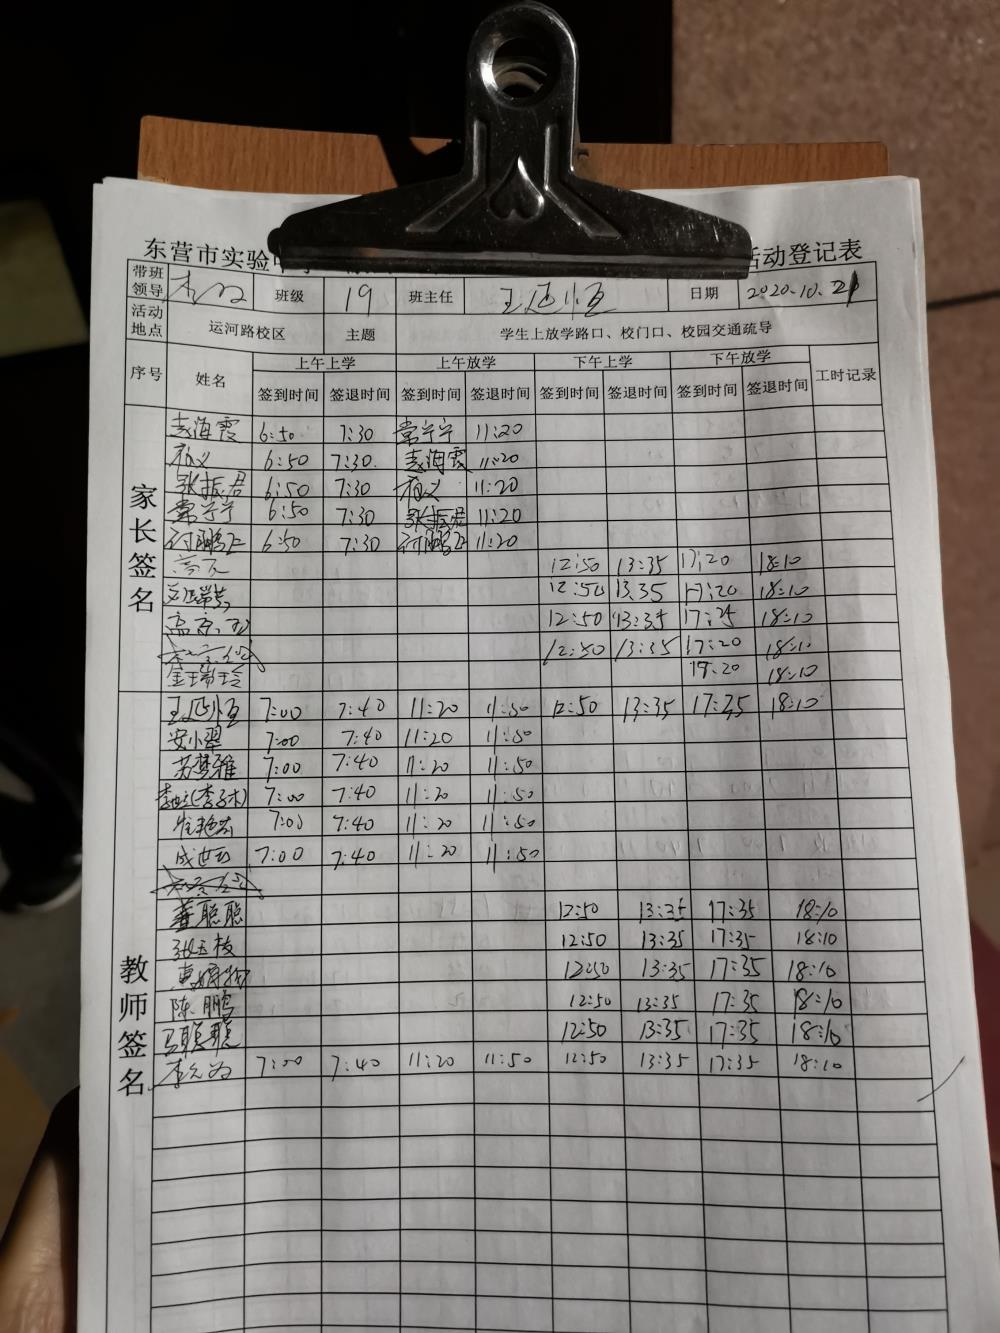 东营市实验中 活动登记表
带班领导 班级 19 班主任 王延恒 日期 2020.10.21
活动地点 运河路校区 主题 学生上放学路口、校门口、校园交通疏导
序号 姓名 上午上学 上午放学 下午上学 下午放学 工时记录
签到时间 签退时间 签到时间 签退时间 签到时间 签退时间 签到时间 签退时间
家长签名
海霞 6:50 7:30 常宁宁 11:20
6:50 7:30 海霞 11:20
张振君 6:50 7:30 11:20
常宁宁 6:50 7:30 张振君 11:20
付鹏飞 6:50 7:30 付鹏飞 11:20
12:50 13:35 17:20 18:10
12:50 13.35 17:20 18:10
12:50 13:35 17:25 18:10
12:50 13:35 17:20 18:10
金瑞玲 17:20 18:10
教师签名
王延恒 7:00 7:40 11:20 11:50 12:50 13:35 17:35 18:10
安小翠 7:00 7:40 11:20 11:50
苏梦雅 7:00 7:40 11:20 11:50
7:00 7:40 11:20 11:50
7:00 7:40 11:20 11:50
7:00 7:40 11:20 11:50
董聪聪 12:50 13:35 17:35 18:10
张玉枝 12:50 13:35 17:35 18:10
12:50 13:35 17:35 18:10
陈鹏 12:50 13:35 17:35 18:10
马聪聪 12:50 13:35 17:35 18:10
7:00 7:40 11:20 11:50 12:50 13:35 17:35 18:10